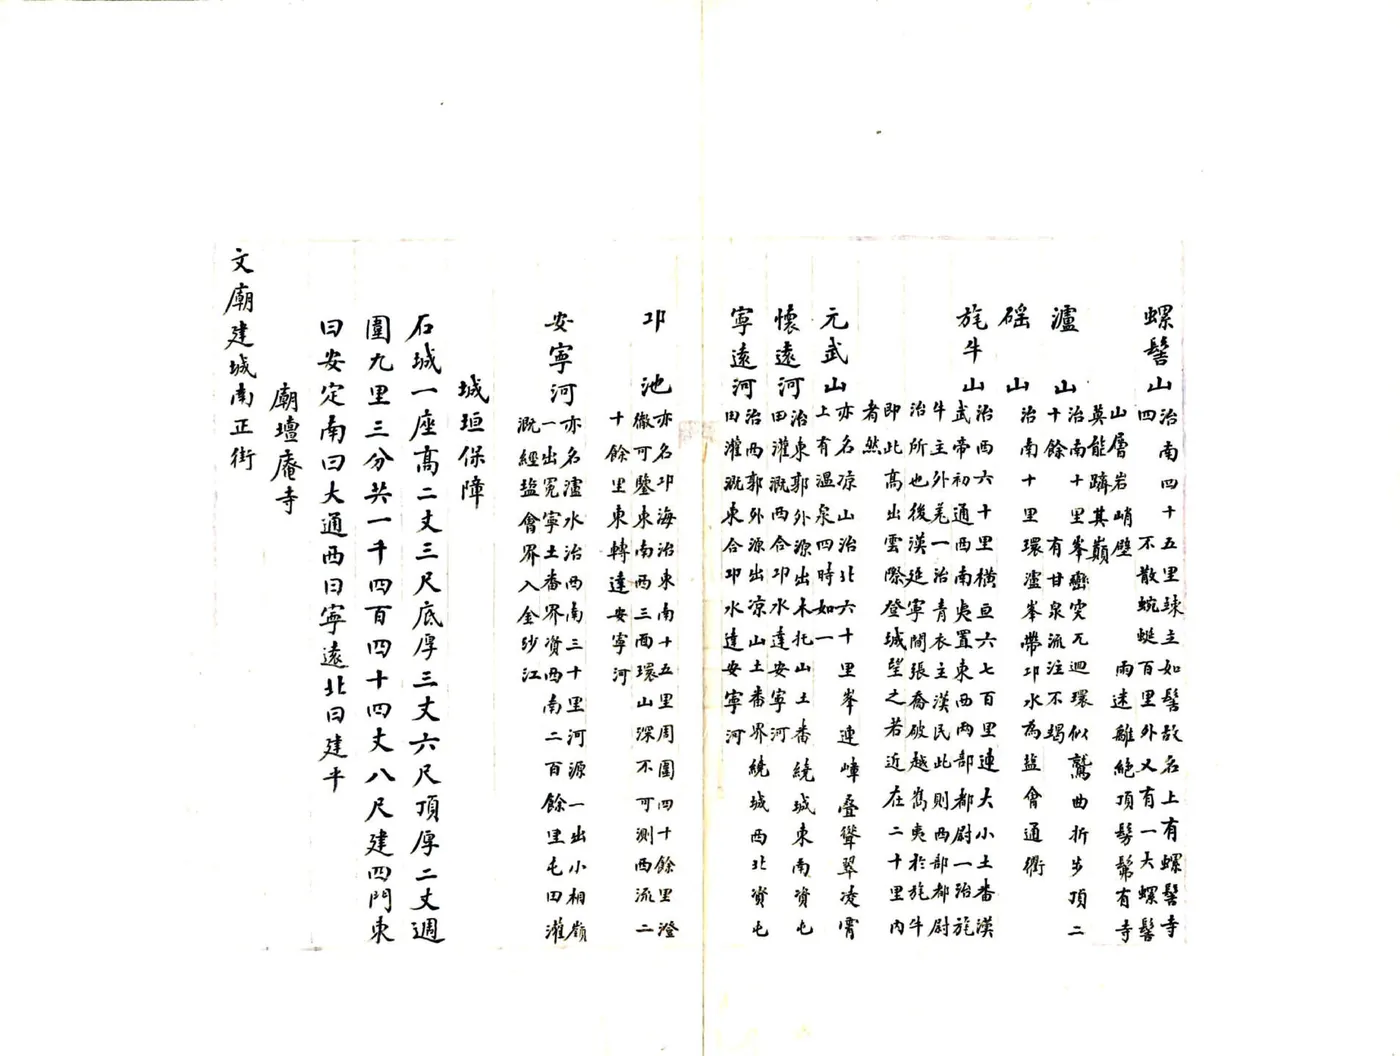 螺髻山
治南四十五里竦主如髻故名上有螺髻寺
四 不散蜿蜒百里外又有一大螺髻
山層岩峭壁 雨遠離絶頂髣髴有寺
莫能躋其巔
瀘山
治南十里峯巒突兀迴環似鷲曲折步頂二
十餘 有甘泉流注不竭
磘山
治南十里環瀘峯帶邛水為盐會通衢
旄牛山
治西六十里橫亘六七百里連大小土番漢
武帝初通西南夷置東西兩部都尉一治旄
牛主外羌一治青衣主漢民此則西部都尉
治所也後漢延寧間張喬破越嶲夷於旄牛
即此高出雲際登城望之若近在二十里內
者然
元武山
亦名凉山治北六十里峯連嶂疊聳翠凌霄
上有温泉四時如一
懷遠河
治東郭外源出木托山土番繞城東南資屯
田灌溉西合邛水達安寧河
寧遠河
治西郭外源出凉山土番界繞城西北資屯
田灌溉東合邛水達安寧河
邛池
亦名邛海治東南十五里周圍四十餘里澄
徹可鑒東南西三面環山深不可測西流二
十餘里東轉達安寧河
安寧河
亦名瀘水治西南三十里河源一出小相嶺
一出冕寧土番界資西南二百餘里屯田灌
溉經盐會界入金沙江
城垣保障
石城一座高二丈三尺底厚三丈六尺頂厚二丈週
圍九里三分共一千四百四十四丈八尺建四門東
曰安定南曰大通西曰寧遠北曰建平
廟壇庵寺
文廟建城南正街